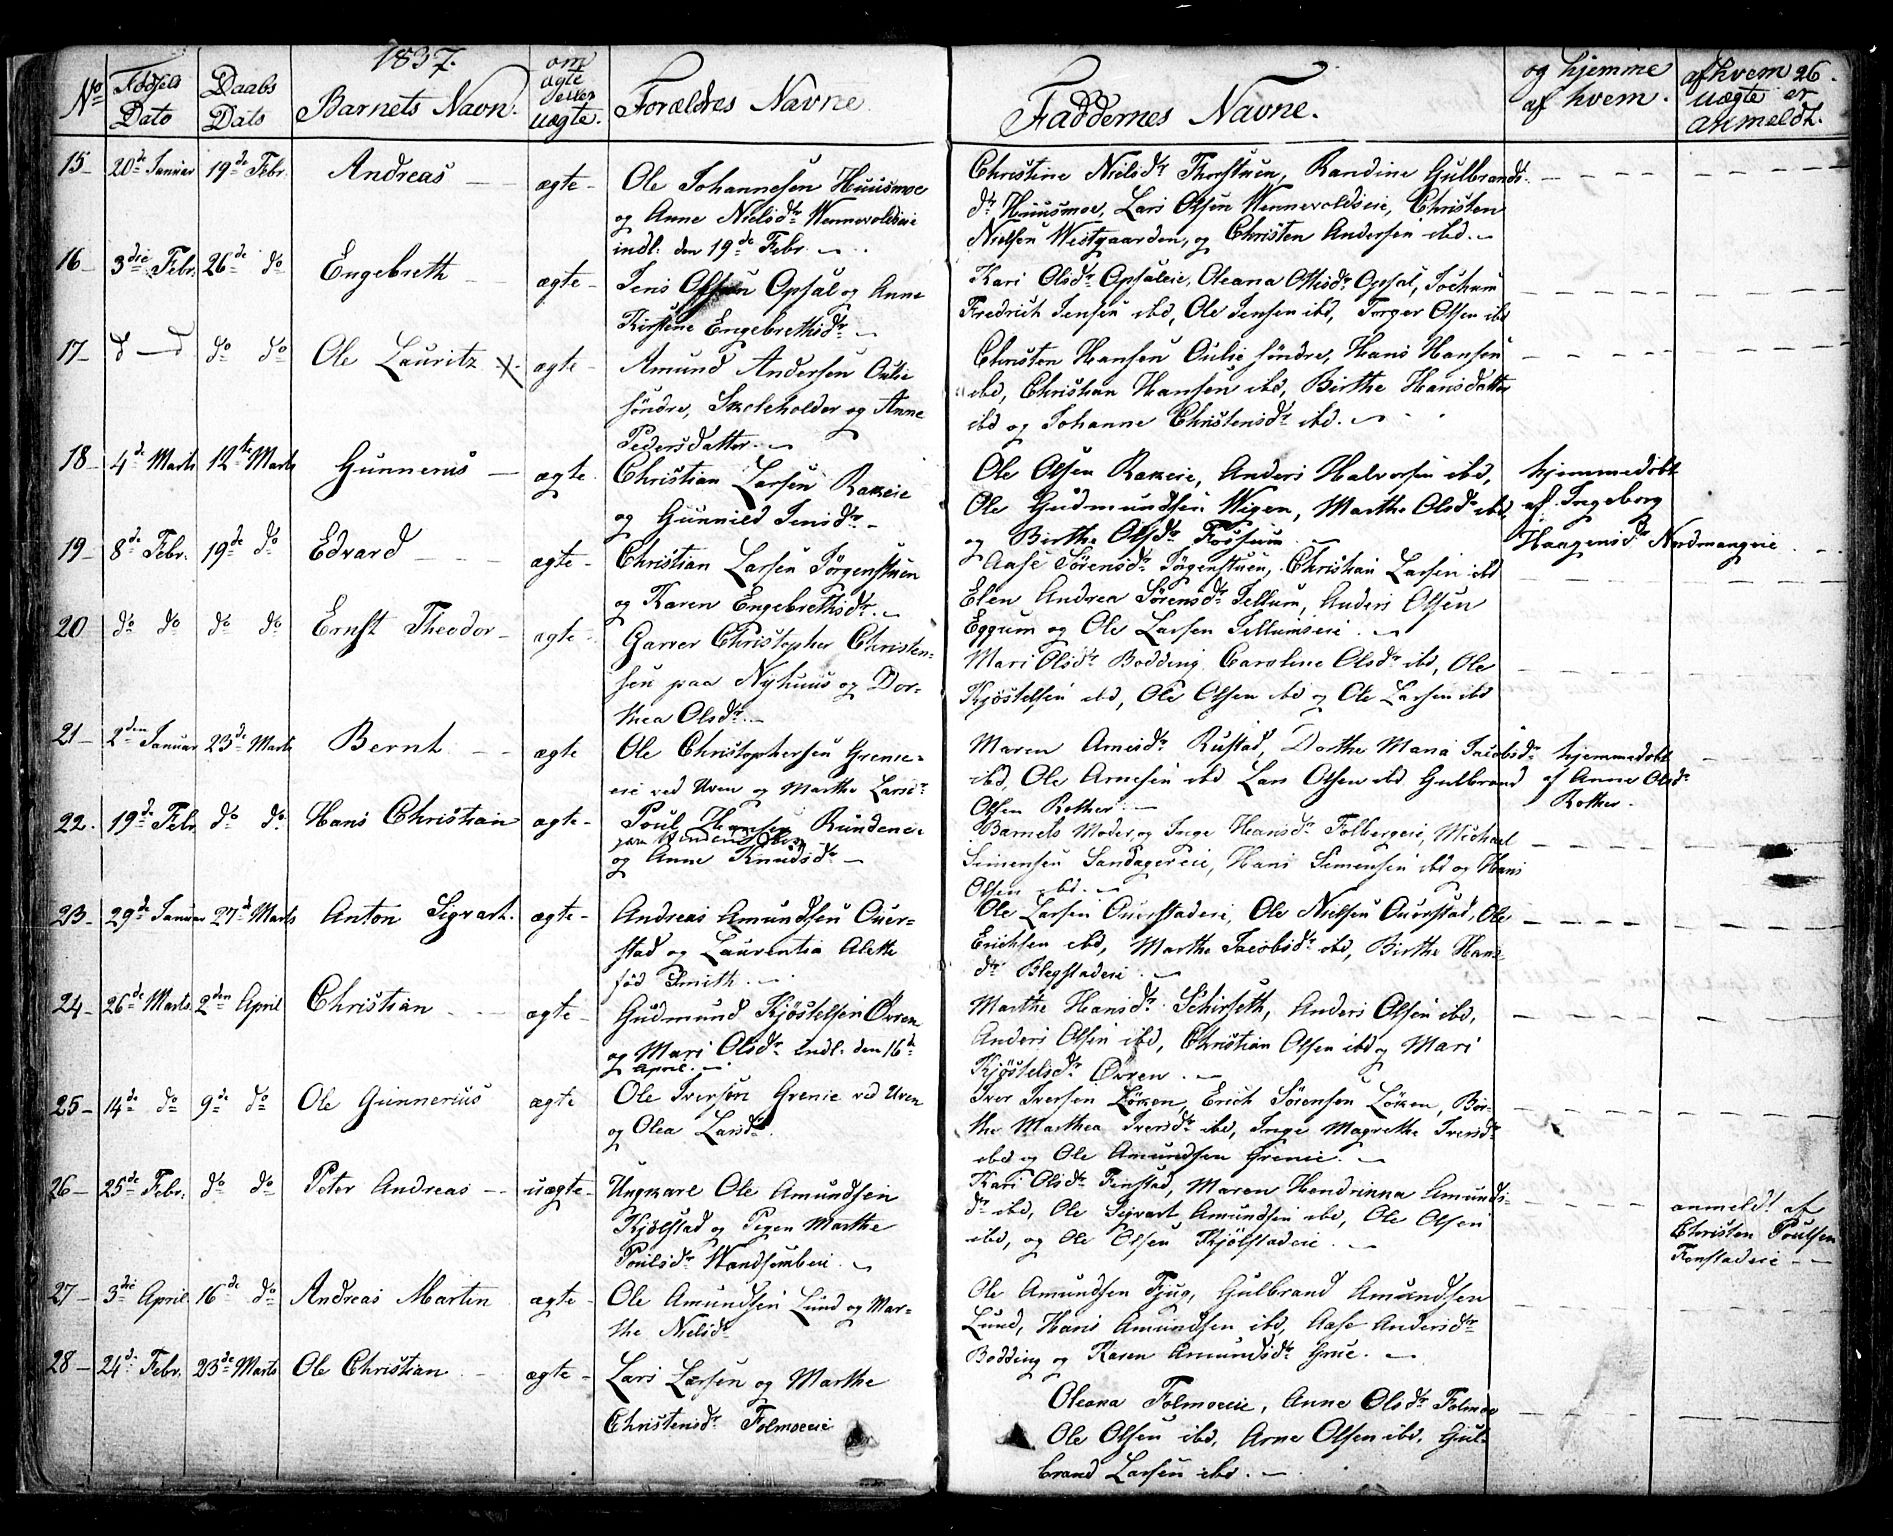 1837.
No Fødsels Dato Daabs Dato Barnets Navn. om ægte eller uægte. Forældres Navne. Faddernes Navne. og hjemme af hvem. af hvem uægte er anmeldt. 26.
15 - 20de Januar 19de Febr. Andreas - ægte -
Ole Johannesen Huusmoe
og Anne Nielsdtr Wennevoldseie
indl. den 19de Febr.
Christine Nielsdtr Thorstuen, Randine Gulbrands
dtr Huusmoe, Lars Olsen Wennevoldseie, Christen
Nielsen Westgaarden, og Christen Andersen ibd.
16 - 3die Febr. 26de do Engebreth - ægte -
Jens Olsen Opsal og Anne
Kirstine Engebrethsdtr
Kari Olsdtr Opsaleie, Oleana Ottisdtr Opsal, Jochum
Fredrich Jensen ibd, Ole Jensen ibd, Torger Olsen ibd
17 - d - d do do Ole Lauritz X ægte -
Amund Andersen Oulie
søndre, Skoleholder og Anne
Pedersdatter.
Christen Hansen Oulie søndre, Hans Hansen
ibd, Christian Hansen ibd, Birthe Hansdatter
ibd og Johanne Christensdtr ibd.
18 - 4de Marts 12te Marts Gunnerus - ægte
Christian Larsen Rakeie
og Gunnild Jensdtr -
Ole Olsen Rakeie, Anders Halvorsen ibd,
Ole Gudmundsen Wigen, Marthe Olsdtr ibd.
og Birthe Olsdtr Fossum
hjemmedøbt
af Ingeborg
Haagensdtr Nordmangeie
19 - 8de Febr. 19de do Edvard - ægte -
Christian Larsen Jørgenstuen
og Karen Engebrethsdtr.
Aase Sørensdtr Jørgenstuen, Christian Larsen ibd
Elen Andrea Sørensdtr Tellum, Anders Olsen
Eggum og Ole Larsen Tellumseie.
20 do do do do Ernst Theodor - ægte -
Garver Christopher Christen-
sen paa Nyhuus og Dor-
thea Olsdtr
Mari Olsdtr Bodding Caroline Olsdtr ibd, Ole
Kjøstelsen ibd, Ole Olsen ibd og Ole Larsen ibd
21 - 2den Januar 23de Marts Bernt - ægte
Ole Christophersen Grenie-
eie ved Uren og Marthe Larsdtr
Maren Arnesdtr Rustad, Dorthe Maria Jacobsdtr
ibd, Ole Arnesen ibd Lars Olsen ibd Gulbrand
Olsen Rother.
hjemmedøbt
af Anne Olsdtr
Rother.
22. 19de Febr. do do Hans Christian ægte -
Poul Hansen Rundeneie
og Anne Knudsdtr -
Barnets Moder og Inge Hansdtr Folbergeie, Michael
Simensen Sandagereie, Hans Simensen ibd og Hans
Olsen ibd.
23 - 29de Januar 27de Marts Anton Sigvart. ægte -
Andreas Amundsen Ouer-
stad og Laurentia Alethe
fød Smith.
Ole Larsen Ouerstadeie, Ole Nielsen Ouerstad, Ole
Erichsen ibd, Marthe Jacobsdtr ibd, Birthe Hans
dtr Blegstadeie.
24 - 26de Marts 2den April Christian - ægte -
Gudmund Kjøstelsen Øvren
og Mari Olsdtr indl. den 16de
April.
Marthe Hansdtr Schirseth, Anders Olsen ibd,
Anders Olsen ibd, Christian Olsen ibd og Mari
Kjøstelsdtr Øvren.
25 - 14de do 9de do Ole Gunnerius ægte
Ole Iversen Grenie ved Uren
og Olea Larsdtr.
Iver Iversen Løken, Erich Sørensen Løken, Bir-
the Marthea Iversdtr ibd, Inge Magrethe Iversdtr
ibd og Ole Amundsen Grenie.
26 - 25de Febr. do do Peter Andreas - uægte -
Ungkarl Ole Amundsen
Kjølstad og Pigen Marthe
Poulsdtr Wandsembeie.
Kari Olsdtr Fenstad, Maren Hendrinna Amunds-
dtr ibd, Ole Sigvart Amundsen ibd, Ole Olsen
ibd, og Ole Olsen Kjølstadeie.
anmeldt af
Christen Poulsen
Fenstadeie -
27 - 3die April 16de do Andreas Martin ægte -
Ole Amundsen Lund og Mar-
the Nielsdtr
Ole Amundsen Fjug, Gulbrand Amundsen
Lund, Hans Amundsen ibd, Aase Andersdtr
Bodding og Karen Amundsdtr Grue.
28 - 24de Febr. 23de Marts Ole Christian - ægte -
Lars Larsen og Marthe
Christensdtr Folmoeeie
Oleana Folmoeeie, Anne Olsdtr Folmoe
Ole Olsen ibd, Arne Olsen ibd, Gul-
brand Larsen ibd.